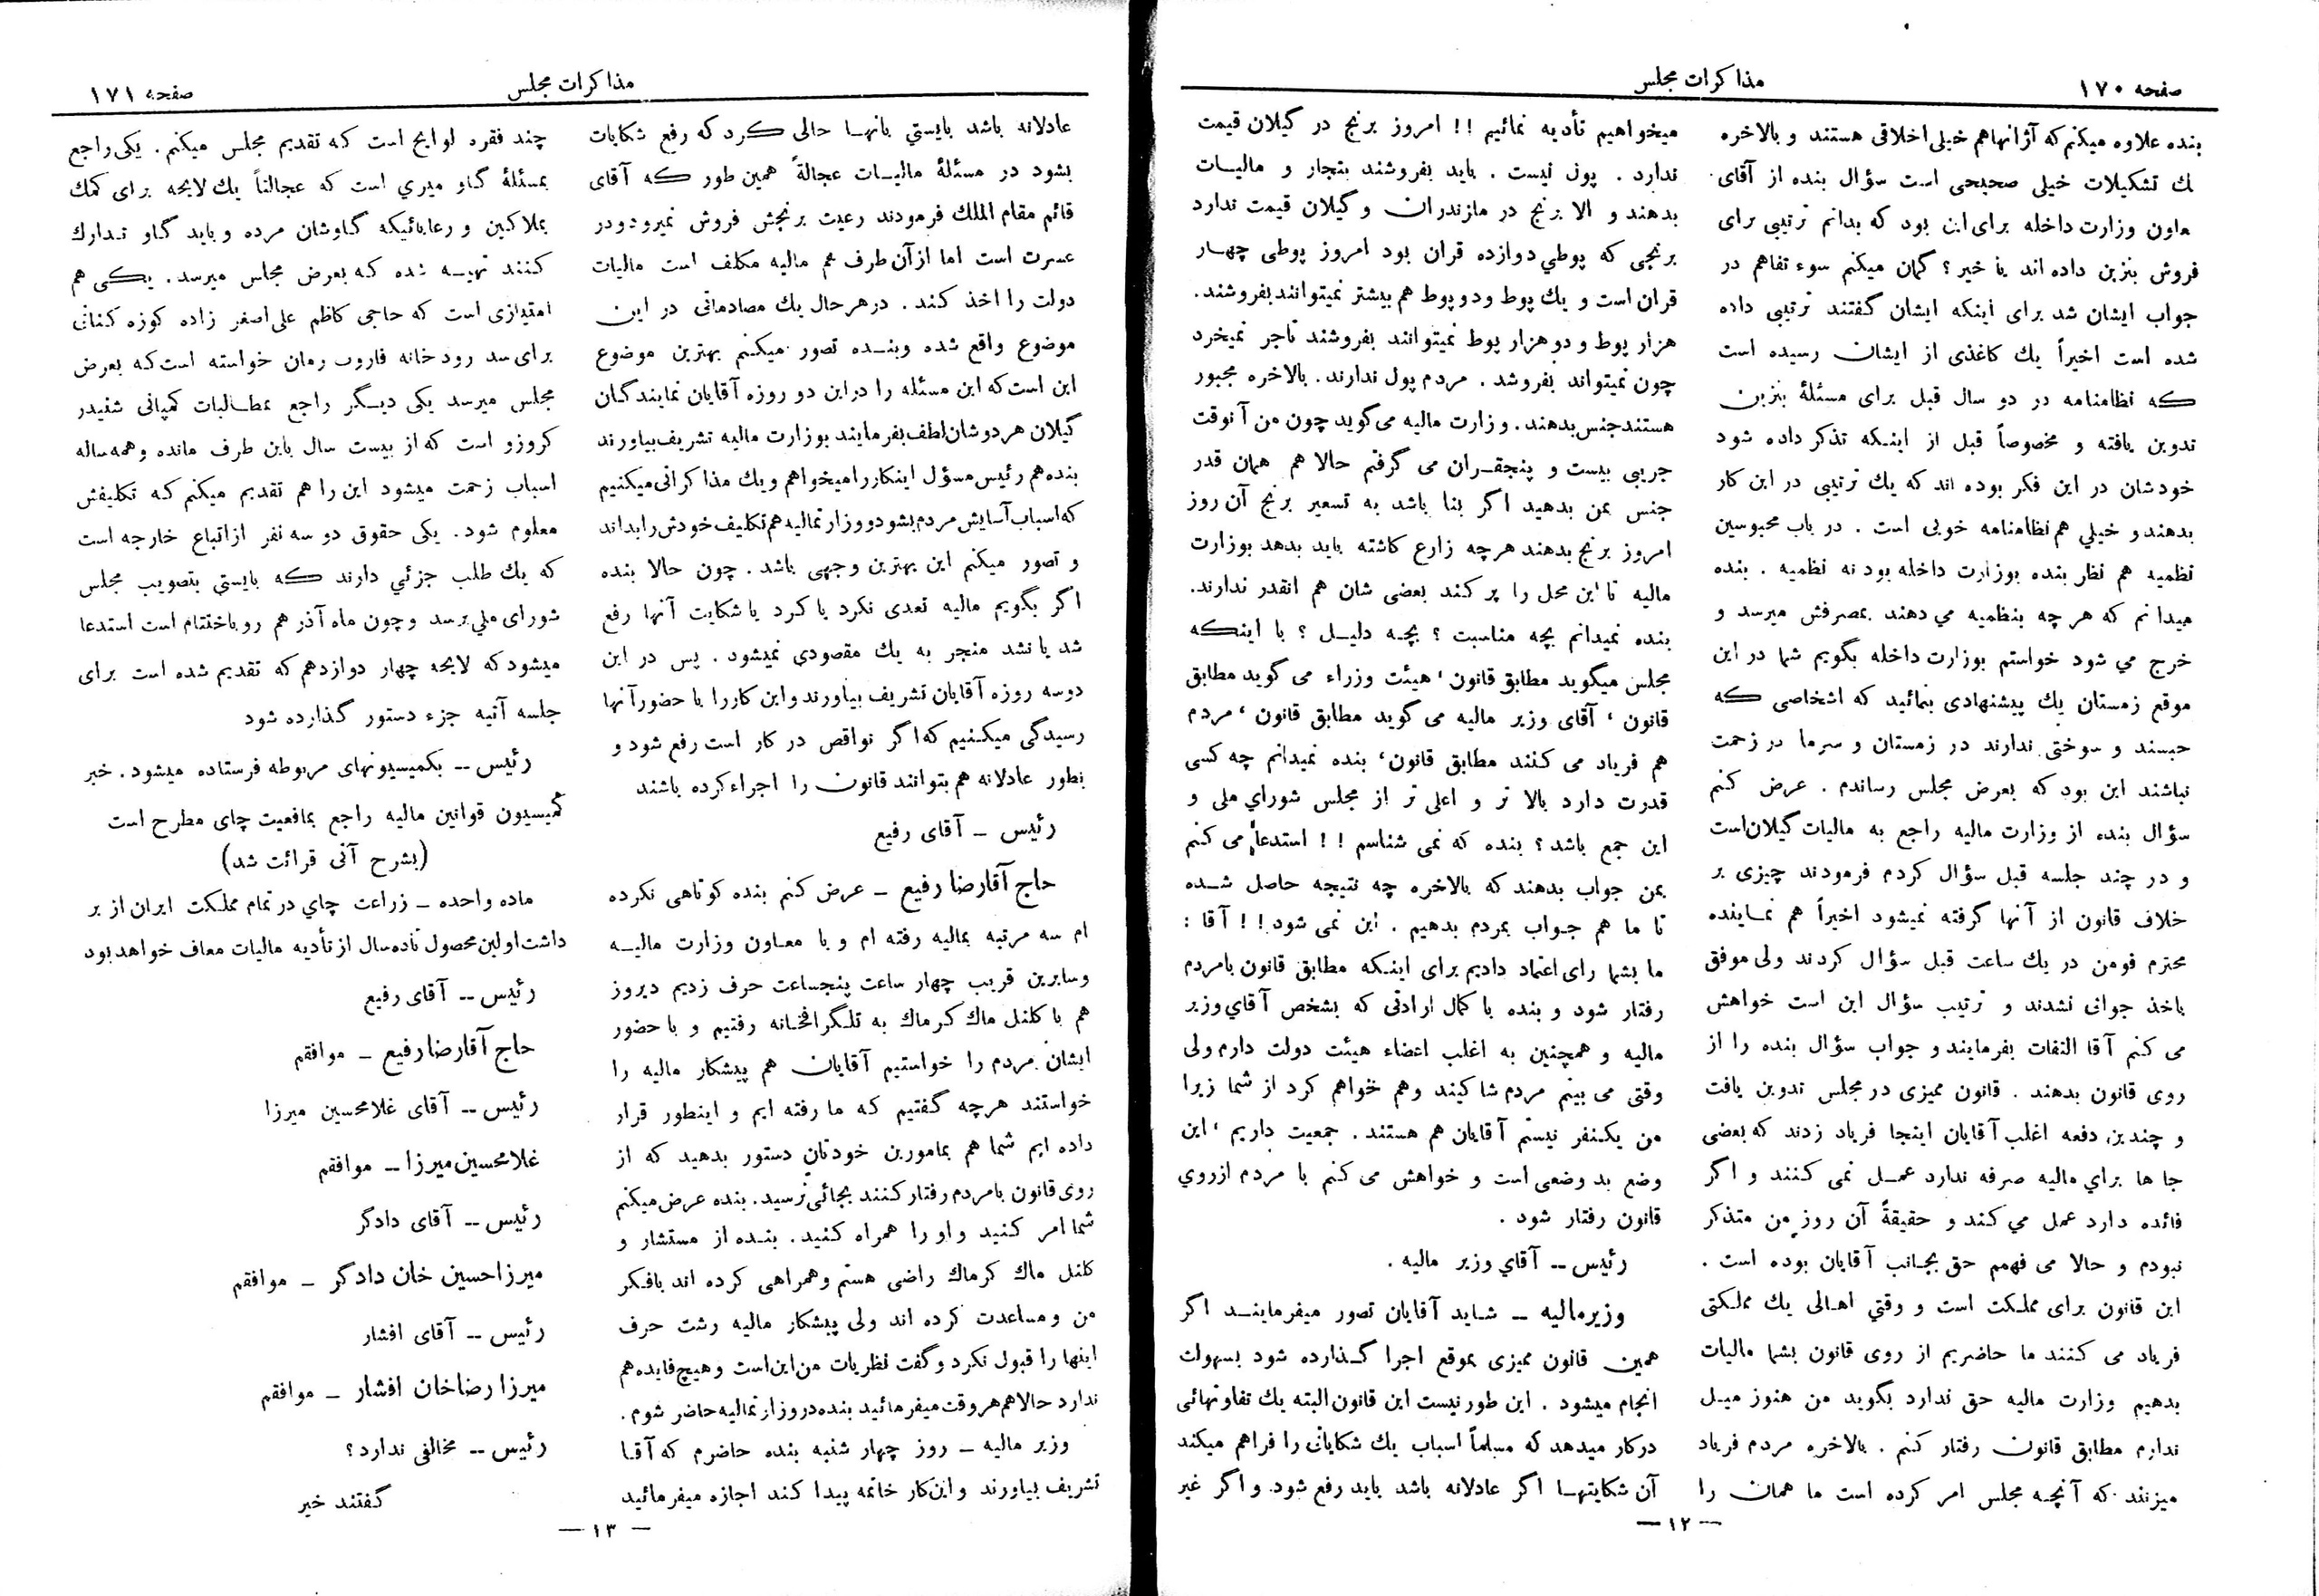 صفحه ۱۷۰
مذاکرات مجلس
بنده علاوه میکنم که آژانهاهم خیلی اخلاقی هستند و بالاخره
یك تشکیلات خیلی صحیحی است سؤال بنده از آقای
معاون وزارت داخله برای این بود که بدانم ترتیبی برای
فروش بنزین داده اند یا خیر؟ گمان میکنم سوء تفاهم در
جواب ایشان شد برای اینکه ایشان گفتند ترتیبی داده
شده است اخیراً یك کاغذی از ایشان رسیده است
که نظامنامه در دو سال قبل برای مسئلهٔ بنزین
تدوین یافته و مخصوصاً قبل از اینکه تذکر داده شود
خودشان در این فکر بوده اند که یك ترتیبی در این کار
بدهند و خیلي هم نظامنامه خوبی است . در باب محبوسین
نظمیه هم نظر بنده بوزارت داخله بود نه نظمیه . بنده
میدانم که هر چه بنظمیه می دهند بمصرفش میرسد و
خرج می شود خواستم بوزارت داخله بگویم شما در این
موقع زمستان یك پیشنهادی بنمائید که اشخاصی که
حبسند و سوختی ندارند در زمستان و سرما در زحمت
نباشند این بود که بعرض مجلس رساندم . عرض کنم
سؤال بنده از وزارت مالیه راجع به مالیات گیلان است
و در چند جلسه قبل سؤال کردم فرمودند چیزی بر
خلاف قانون از آنها گرفته نمیشود اخیراً هم نماینده
محترم فومن در یك ساعت قبل سؤال کردند ولی موفق
باخذ جوابی نشدند و ترتیب سؤال این است خواهش
می کنم آقا التفات بفرمایند و جواب سؤال بنده را از
روی قانون بدهند . قانون ممیزی در مجلس تدوین یافت
و چندین دفعه اغلب آقایان اینجا فریاد زدند که بعضی
جا ها برای مالیه صرفه ندارد عمل نمی کنند و اگر
فائده دارد عمل می کند و حقیقةً آن روز من متذکر
نبودم و حالا می فهمم حق بجانب آقایان بوده است .
این قانون برای مملکت است و وقتي اهالی یك مملکتی
فریاد می کنند ما حاضریم از روی قانون بشما مالیات
بدهیم وزارت مالیه حق ندارد بگوید من هنوز میل
ندارم مطابق قانون رفتار کنم . بالاخره مردم فریاد
میزنند که آنچه مجلس امر کرده است ما همان را
میخواهیم تأدیه نمائیم !! امروز برنج در گیلان قیمت
ندارد . پول نیست . باید بفروشند بتجار و مالیات
بدهند و الا برنج در مازندران و گیلان قیمت ندارد
برنجی که پوطي دوازده قران بود امروز پوطی چهار
قران است و یك پوط و دو پوط هم بیشتر نمیتوانند بفروشند.
هزار پوط و دو هزار پوط نمیتوانند بفروشند تاجر نمیخرد
چون نمیتواند بفروشد . مردم پول ندارند . بالاخره مجبور
هستند جنس بدهند . وزارت مالیه می گوید چون من آنوقت
جریبی بیست و پنجقران می گرفتم حالا هم همان قدر
جنس بمن بدهید اگر بنا باشد به تسعیر برنج آن روز
امروز برنج بدهند هرچه زارع کاشته باید بدهد بوزارت
مالیه تا این محل را پر کند بعضی شان هم انقدر ندارند.
بنده نمیدانم بچه مناسبت ؟ بچه دلیل ؟ با اینکه
مجلس میگوید مطابق قانون ، هیئت وزراء می گوید مطابق
قانون ، آقای وزیر مالیه می گوید مطابق قانون ، مردم
هم فریاد می کنند مطابق قانون، بنده نمیدانم چه کسی
قدرت دارد بالا تر و اعلی تر از مجلس شورای ملی و
این جمع باشد ؟ بنده که نمی شناسم !! استدعا می کنم
بمن جواب بدهند که بالاخره چه نتیجه حاصل شده
تا ما هم جواب بمردم بدهیم . این نمی شود !! آقا :
ما بشما رای اعتماد دادیم برای اینکه مطابق قانون بامردم
رفتار شود و بنده با کمال ارادتی که بشخص آقای وزیر
مالیه و همچنین به اغلب اعضاء هیئت دولت دارم ولی
وقتی می بینم مردم شاکیند وهم خواهم کرد از شما زیرا
من یکنفر نیستم آقایان هم هستند . جمعیت داریم ، این
وضع بد وضعی است و خواهش می کنم با مردم ازروي
قانون رفتار شود .
رئیس ــ آقاي وزیر مالیه .
وزیرمالیه ــ شاید آقایان تصور میفرمایند اگر
همین قانون ممیزی بموقع اجرا گذارده شود بسهولت
انجام میشود . این طور نیست این قانون البته یك تفاوتهائی
درکار میدهد که مسلماً اسباب یك شکایاتی را فراهم میکند
آن شکایتها اگر عادلانه باشد باید رفع شود . و اگر غیر
— ۱۲ —
مذاکرات مجلس
صفحه ۱۷۱
عادلانه باشد بایستي بانها حالی کرد که رفع شکایات
بشود در مسئلهٔ مالیات عجالةً همین طور که آقای
قائم مقام الملك فرمودند رعیت برنجش فروش نمیرود و در
عسرت است اما از آن طرف هم مالیه مکلف است مالیات
دولت را اخذ کند . درهرحال یك مصادماتی در این
موضوع واقع شده وبنده تصور میکنم بهترین موضوع
این است که این مسئله را در این دو روزه آقایان نمایندگان
گیلان هر دوشان لطف بفرمایند بوزارت مالیه تشریف بیاورند
بنده هم رئیس مسؤل اینکار را میخواهم و یك مذاکراتی میکنیم
که اسباب آسایش مردم بشود و وزارتمالیه هم تکلیف خودش را بداند
و تصور میکنم این بهترین وجهی باشد . چون حالا بنده
اگر بگویم مالیه تعدی نکرد یا کرد یا شکایت آنها رفع
شد یا نشد منجر به یك مقصودی نمیشود . پس در این
دوسه روزه آقایان تشریف بیاورند و این کار را با حضور آنها
رسیدگی میکنیم که اگر نواقص در کار است رفع شود و
بطور عادلانه هم بتوانند قانون را اجراء کرده باشند
رئیس ــ آقای رفیع
حاج آقارضا رفیع ــ عرض کنم بنده کوتاهی نکرده
ام سه مرتبه بمالیه رفته ام و با معاون وزارت مالیه
وسایرین قریب چهار ساعت پنجساعت حرف زدیم دیروز
هم با کلنل ماك کرماك به تلگرافخانه رفتیم و با حضور
ایشان مردم را خواستیم آقایان هم پیشکار مالیه را
خواستند هرچه گفتیم که ما رفته ایم و اینطور قرار
داده ایم شما هم بمامورین خودتان دستور بدهید که از
روی قانون بامردم رفتار کنند بجائی نرسید . بنده عرض میکنم
شما امر کنید و او را همراه کنید . بنده از مستشار و
کلنل ماك کرماك راضی هستم وهمراهی کرده اند بافکر
من ومساعدت کرده اند ولی پیشکار مالیه رشت حرف
اینها را قبول نکرد و گفت نظریات من این است و هیچ فایده هم
ندارد حالا هم هر وقت میفرمائید بنده در وزارتمالیه حاضر شوم .
وزیر مالیه ــ روز چهار شنبه بنده حاضرم که آقا
تشریف بیاورند و این کار خاتمه پیدا کند اجازه میفرمائید
چند فقره لوایح است که تقدیم مجلس میکنم . یکی راجع
بمسئلهٔ گاو میري است که عجالتاً یك لایحه برای کمك
بملاکین و رعایائیکه گاوشان مرده و باید گاو تدارك
کنند تهیه شده که بعرض مجلس میرسد . یکی هم
امتیازی است که حاجی کاظم علی اصغر زاده کوزه کنانی
برای سد رود خانه فاروب رمان خواسته است که بعرض
مجلس میرسد یکی دیگر راجع بمطالبات کمپانی شنیدر
کروزو است که از بیست سال باین طرف مانده و همه ساله
اسباب زحمت میشود این را هم تقدیم میکنم که تکلیفش
معلوم شود . یکی حقوق دو سه نفر ازاتباع خارجه است
که یك طلب جزئي دارند که بایستي بتصویب مجلس
شورای ملي برسد و چون ماه آذر هم رو باختتام است استدعا
میشود که لایحه چهار دوازدهم که تقدیم شده است برای
جلسه آتیه جزء دستور گذارده شود
رئیس ــ بکمیسیونهای مربوطه فرستاده میشود . خبر
کمیسیون قوانین مالیه راجع بمافعیت چای مطرح است
(بشرح آتی قرائت شد)
ماده واحده ــ زراعت چاي در تمام مملکت ایران از بر
داشت اولین محصول تا ده سال از تأدیه مالیات معاف خواهد بود
رئیس ــ آقای رفیع
حاج آقارضا رفیع ــ موافقم
رئیس ــ آقای غلامحسین میرزا
غلامحسین میرزا ــ موافقم
رئیس ــ آقای دادگر
میرزا حسین خان دادگر ــ موافقم
رئیس ــ آقای افشار
میرزا رضاخان افشار ــ موافقم
رئیس ــ مخالفی ندارد ؟
گفتند خیر
— ۱۳ —